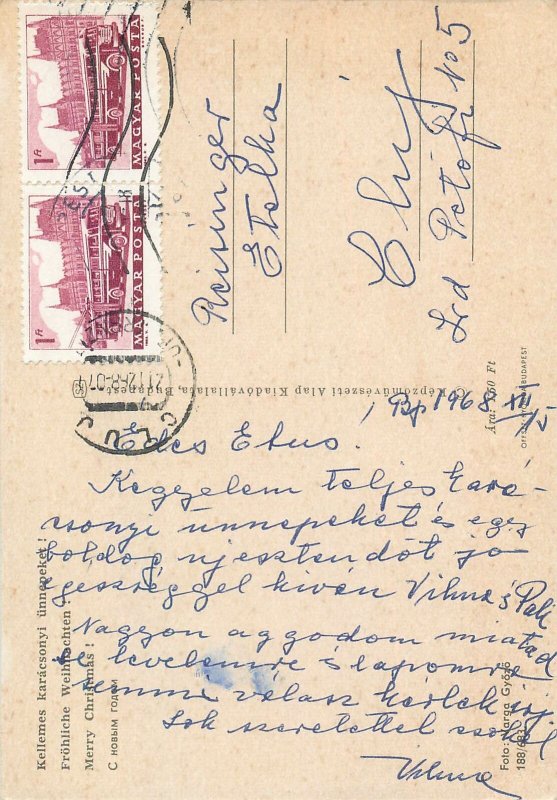 1Ft
MAGYAR POSTA
1Ft
MAGYAR POSTA
CLUJ
-7.12.68-07
Reisinger
Etelka
Cluj
Petőfi No 5
Képzőművészeti Alap Kiadóvállalata, Budapest
Ft
OFFSET BUDAPEST
Bp 1968 XII/5
Edes Etus.
Kegyelem teljes kará-
csonyi ünnepeket és egy
boldog ujesztendőt jó
egészséggel kiván Vilma és Pali
Nagyon aggodom miatad
se levelemre s lapomra
semmi válasz kérlek irj
Sok szeretettel csokol
Vilma
Kellemes karácsonyi ünnepeket!
Fröhliche Weihnachten!
Merry Christmas!
С новым годом
Foto: Varga Győző
188/683